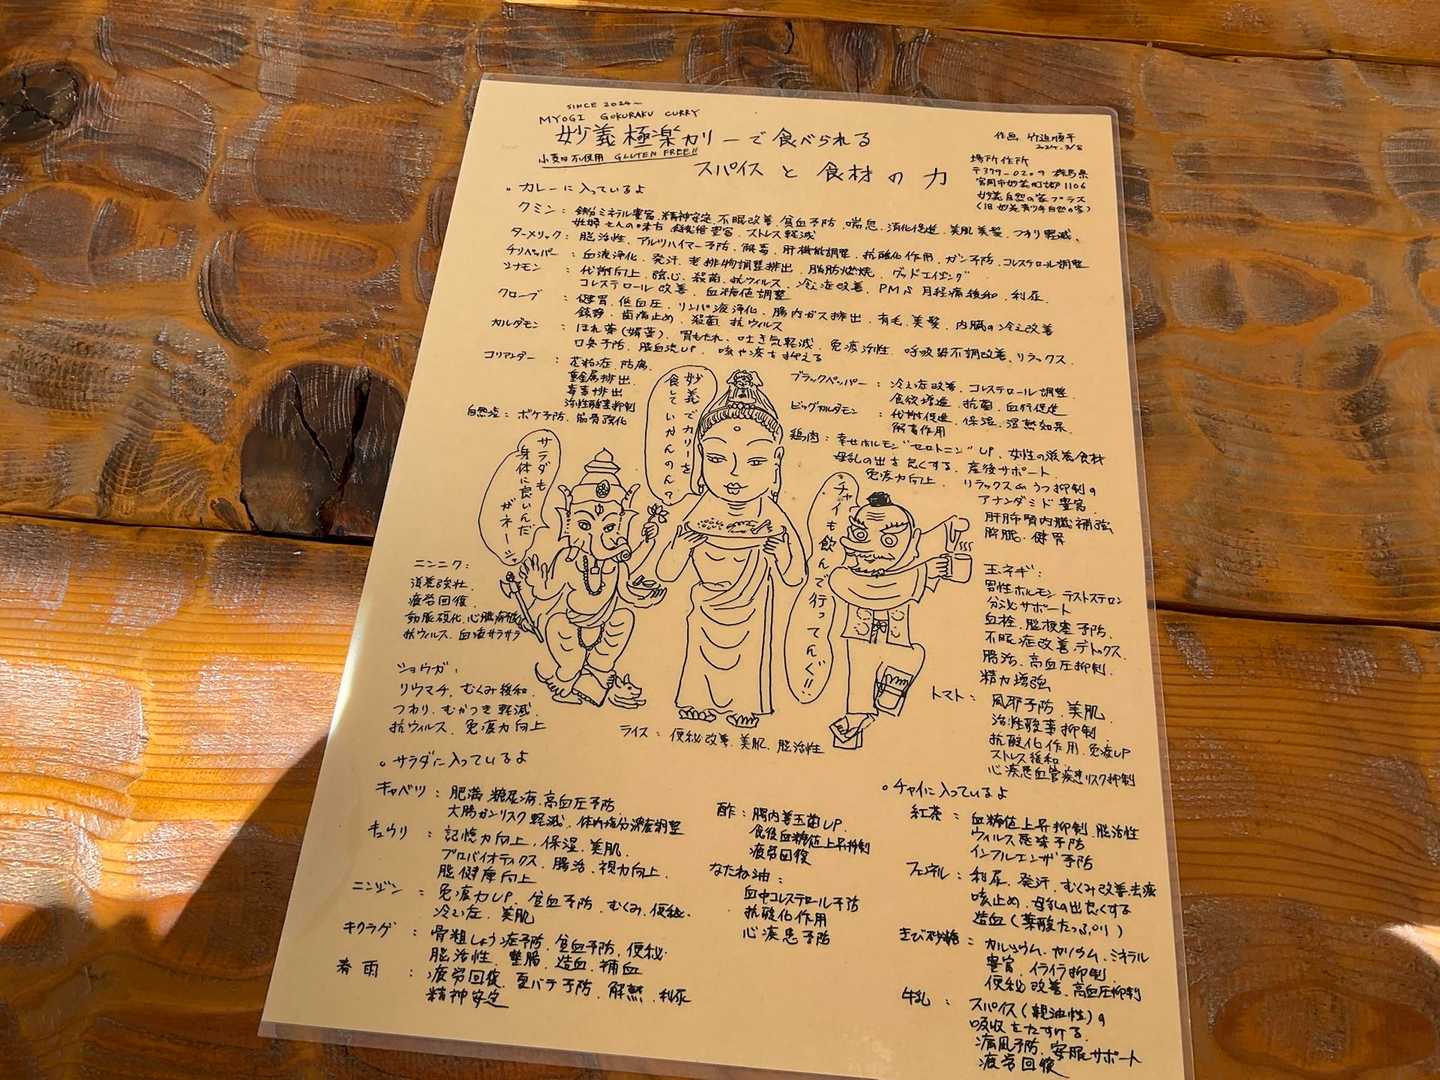 SINCE 2024〜
MYOGI GOKURAKU CURRY
妙義極楽カリーで食べられる
小麦粉不使用 GLUTEN FREE!!
スパイスと食材の力
作画 竹迫順平
2024.3/8
場所 作所
〒379-0209 群馬県
富岡市妙義町妙 1106
妙義自然の家プラス
(旧妙義青少年自然の家)
。カレーに入っているよ
クミン：鉄分ミネラル豊富、精神安定、不眠改善、貧血予防、喘息、消化促進、美肌美髪、つわり軽減、
妊婦さんの味方 豊富、ストレス軽減
ターメリック：脳活性、アルツハイマー予防、解毒、肝機能調整、抗酸化作用、ガン予防、コレステロール調整
チリペッパー：血液浄化、発汗、老排物調整排出、脂肪燃焼、グッドエイジング
シナモン：代謝向上、強心、殺菌、抗ウィルス、冷え症改善、PMS 月経痛緩和、利尿、
コレステロール改善、血糖値調整
クローブ：健胃、低血圧、リンパ液浄化、腸内ガス排出、育毛、美髪、内臓の冷え改善
鎮静、歯痛止め、殺菌、抗ウィルス
カルダモン：ほれ薬(媚薬)、胃もたれ、吐き気軽減、免疫活性、呼吸器不調改善、リラックス、
口臭予防、脳血流UP、咳や痰を抑える
コリアンダー：花粉症、防腐、
重金属排出、
毒素排出
活性酸素抑制
自然塩：ボケ予防、筋骨強化
ブラックペッパー：冷え症改善、コレステロール調整
食欲増進、抗菌、血行促進
ビッグカルダモン：代謝促進、保湿、温熱効果、
解毒作用
鶏肉：幸せホルモン"セロトニン"UP、女性の滋養食材
母乳の出を良くする、産後サポート
免疫力向上、リラックス&うつ抑制の
アナンダミド豊富、
肝肺腎内臓補強
快眠、健胃
妙義でカリーを
食していかんのん？
サラダも
身体に良いんだ
ガネーシャ
チャイも飲んで行ってんぐ!!
ニンニク：
滋養強壮、
疲労回復、
動脈硬化、心臓病予防
抗ウィルス、血液サラサラ
ショウガ：
リウマチ、むくみ緩和、
つわり、むかつき軽減、
抗ウィルス、免疫力向上
玉ネギ：
男性ホルモン テストステロン
分泌サポート
血栓、脳梗塞予防、
不眠症改善、デトックス、
腸活、高血圧抑制、
精力増強
トマト：風邪予防、美肌、
活性酸素抑制
抗酸化作用、免疫UP
ストレス緩和
心疾患血管疾患リスク抑制
ライス：便秘改善、美肌、脳活性
。サラダに入っているよ
キャベツ：肥満、糖尿病、高血圧予防
大腸ガンリスク軽減、体内塩分濃度調整
キュウリ：記憶力向上、保湿、美肌、
プロバイオティクス、腸活、視力向上、
脳健康向上
ニンジン：免疫力UP、貧血予防、むくみ、便秘、
冷え症、美肌
キクラゲ：骨粗しょう症予防、貧血予防、便秘、
脳活性、整腸、造血、補血
春雨：疲労回復、夏バテ予防、解熱、利尿
精神安定
酢：腸内善玉菌UP、
食後血糖値上昇抑制
疲労回復
なたね油：
血中コレステロール予防
抗酸化作用
心疾患予防
。チャイに入っているよ
紅茶：血糖値上昇抑制、脳活性
ウィルス感染予防
インフルエンザ予防
フェンネル：利尿、発汗、むくみ改善、去痰
咳止め、母乳の出良くする
造血(葉酸たっぷり)
きび砂糖：カルシウム、カリウム、ミネラル
豊富、イライラ抑制
便秘改善、高血圧抑制
牛乳：スパイス(親油性)の
吸収をたすける
痛風予防、安眠サポート
疲労回復